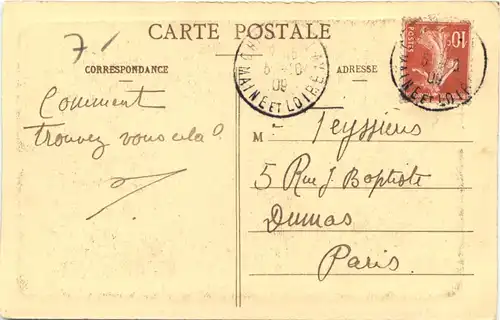 CARTE POSTALE
7.
CORRESPONDANCE
ADRESSE
Comment
trouvez vous cela?
M Teyssiens
5 Rue J. Baptiste
Dumas
Paris.
MAINE ET LOIRE
09
POSTES 10
MAINE ET LOIRE
09